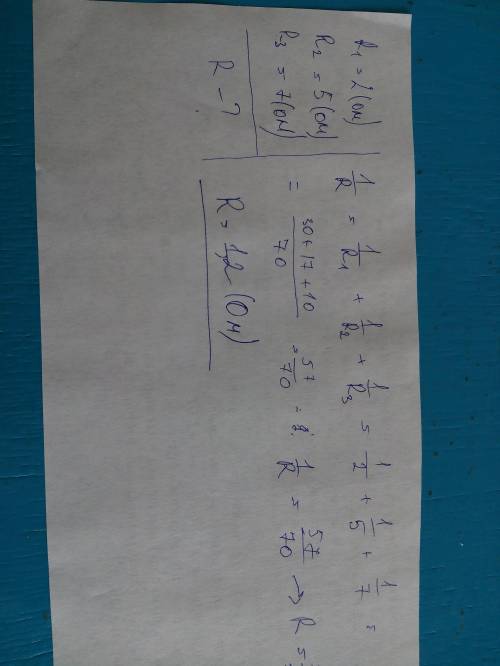 R₁ = 2 (Ом)
R₂ = 5 (Ом)
R₃ = 7 (Ом)
R – ?
1/R = 1/R₁ + 1/R₂ + 1/R₃ = 1/2 + 1/5 + 1/7 =
= (30 + 17 + 10)/70 = 57/70 = 1/R = 57/70 → R =
R = 1,2 (Ом)